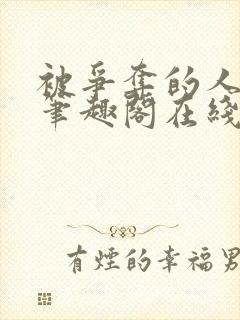 被爭奪的人
筆趣閣在綫
有煙的幸福男